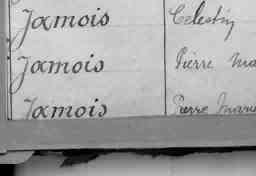 Jamois Celestin
Jamois Pierre Ma
Jamois Pierre Marie